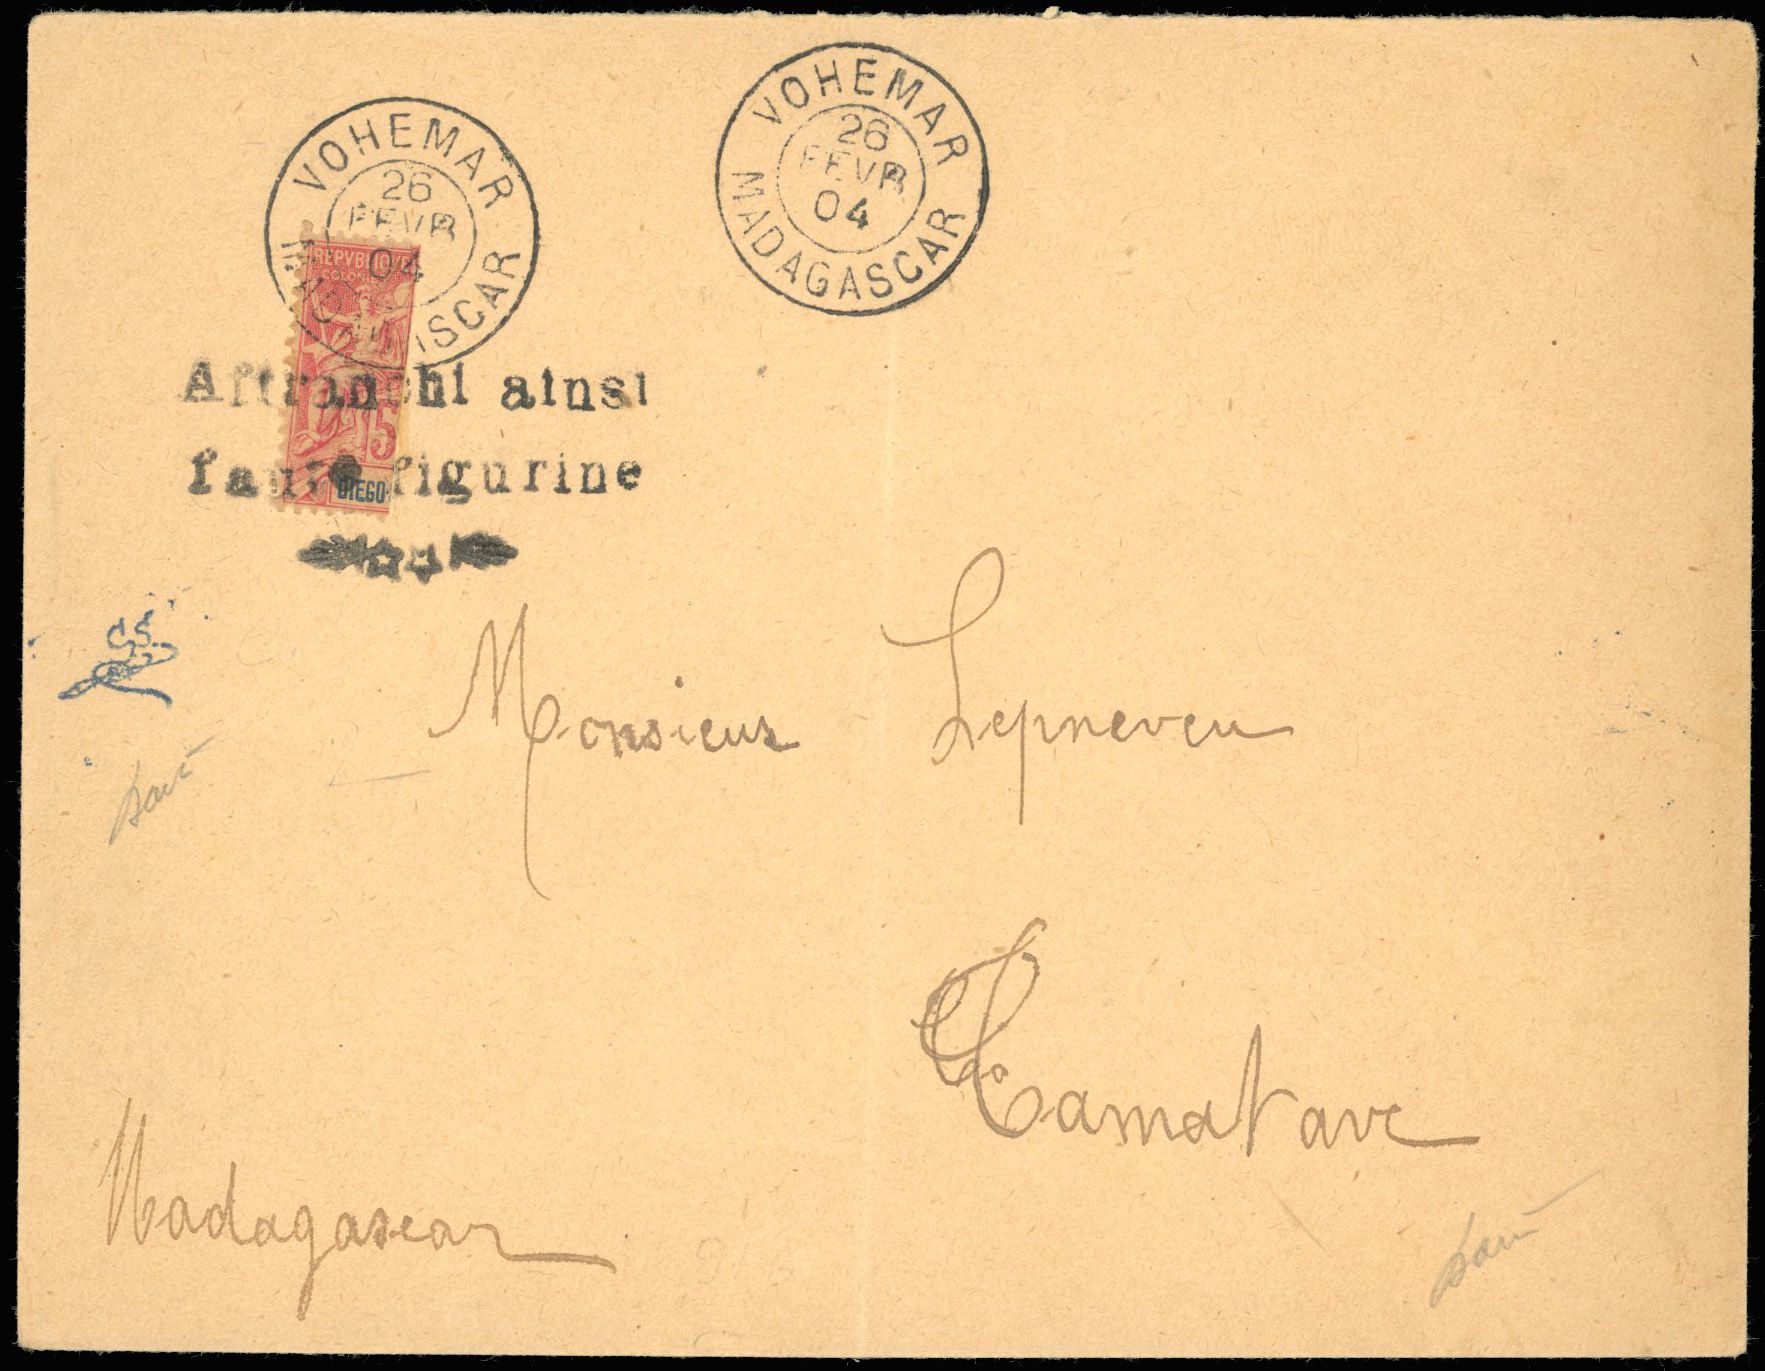 VOHEMAR
26
FEVR
04
MADAGASCAR
VOHEMAR
26
FEVR
04
MADAGASCAR
REPVBLIQVE
COLONIES
5
DIEGO-
Affranchi ainsi
faute figurine
Monsieur Lepneveu
Tamatave
Madagascar